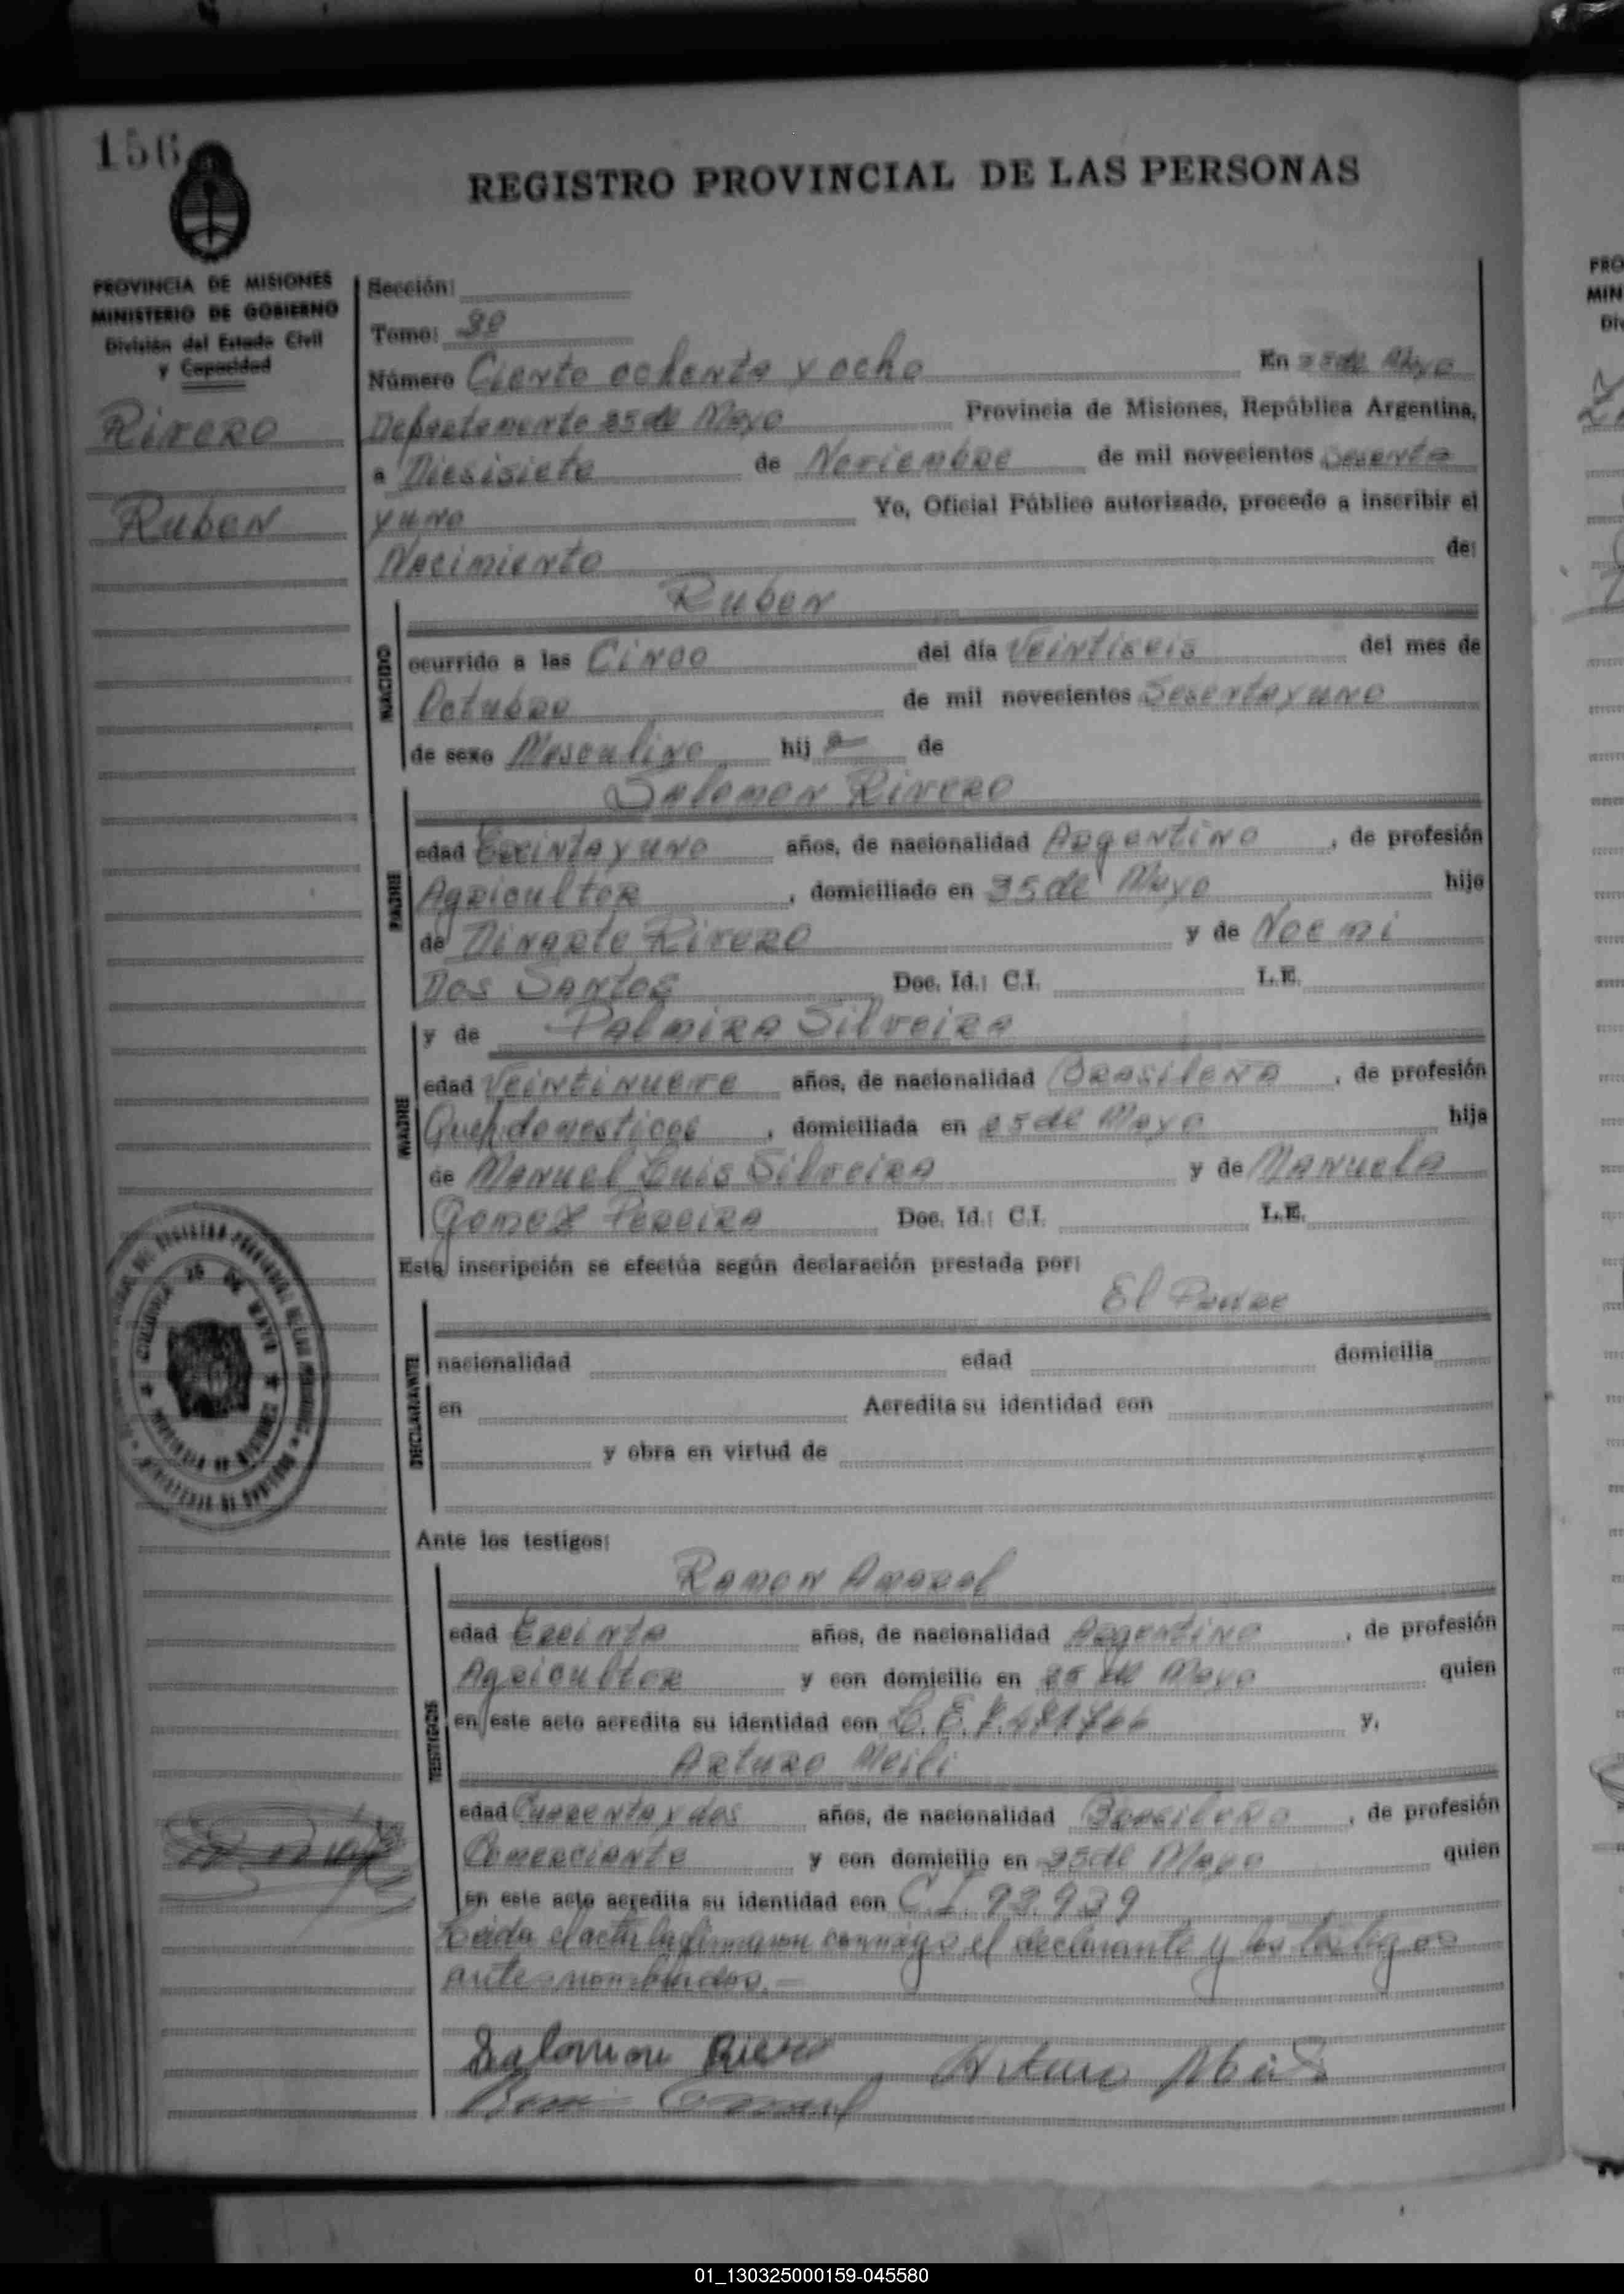 156
REGISTRO PROVINCIAL DE LAS PERSONAS
PROVINCIA DE MISIONES
MINISTERIO DE GOBIERNO
División del Estado Civil
y Capacidad
Rivero
Ruben
Sección:
Tomo: 3º
Número Ciento ochenta y ocho En 25 de Mayo
Departamento 25 de Mayo Provincia de Misiones, República Argentina,
a Diesisiete de Noviembre de mil novecientos Sesenta
y uno Yo, Oficial Público autorizado, procedo a inscribir el
Nacimiento de:
Ruben
NACIDO
ocurrido a las Cinco del día Veintiseis del mes de
Octubre de mil novecientos Sesenta y uno
de sexo Masculino hij o de
Salomon Rivero
PADRE
edad treinta y uno años, de nacionalidad Argentino , de profesión
Agricultor , domiciliado en 25 de Mayo hijo
de Dinarte Rivero y de Noemi
Dos Santos Doc. Id.: C.I. L.E.
y de Palmira Silveira
MADRE
edad Veintinueve años, de nacionalidad Brasileña , de profesión
Queh domesticos , domiciliada en 25 de Mayo hija
de Manuel Luis Silveira y de Manuela
Gomez Pereira Doc. Id.: C.I. L.E.
Esta inscripción se efectúa según declaración prestada por:
El Padre
DECLARANTE
nacionalidad edad domicilia
en Acredita su identidad con
y obra en virtud de
Ante los testigos:
Ramon Amaral
TESTIGOS
edad treinta años, de nacionalidad Argentino , de profesión
Agricultor y con domicilio en 25 de Mayo quien
en este acto acredita su identidad con L.E. y,
Arturo Meili
edad Cuarenta y dos años, de nacionalidad Brasilero , de profesión
Comerciante y con domicilio en 25 de Mayo quien
en este acto acredita su identidad con C.I. 93.939
Leida el acta la firmaron conmigo el declarante y los testigos
ante-nombrados.-
Salomon Rivero Arturo Meili
01_130325000159-045580